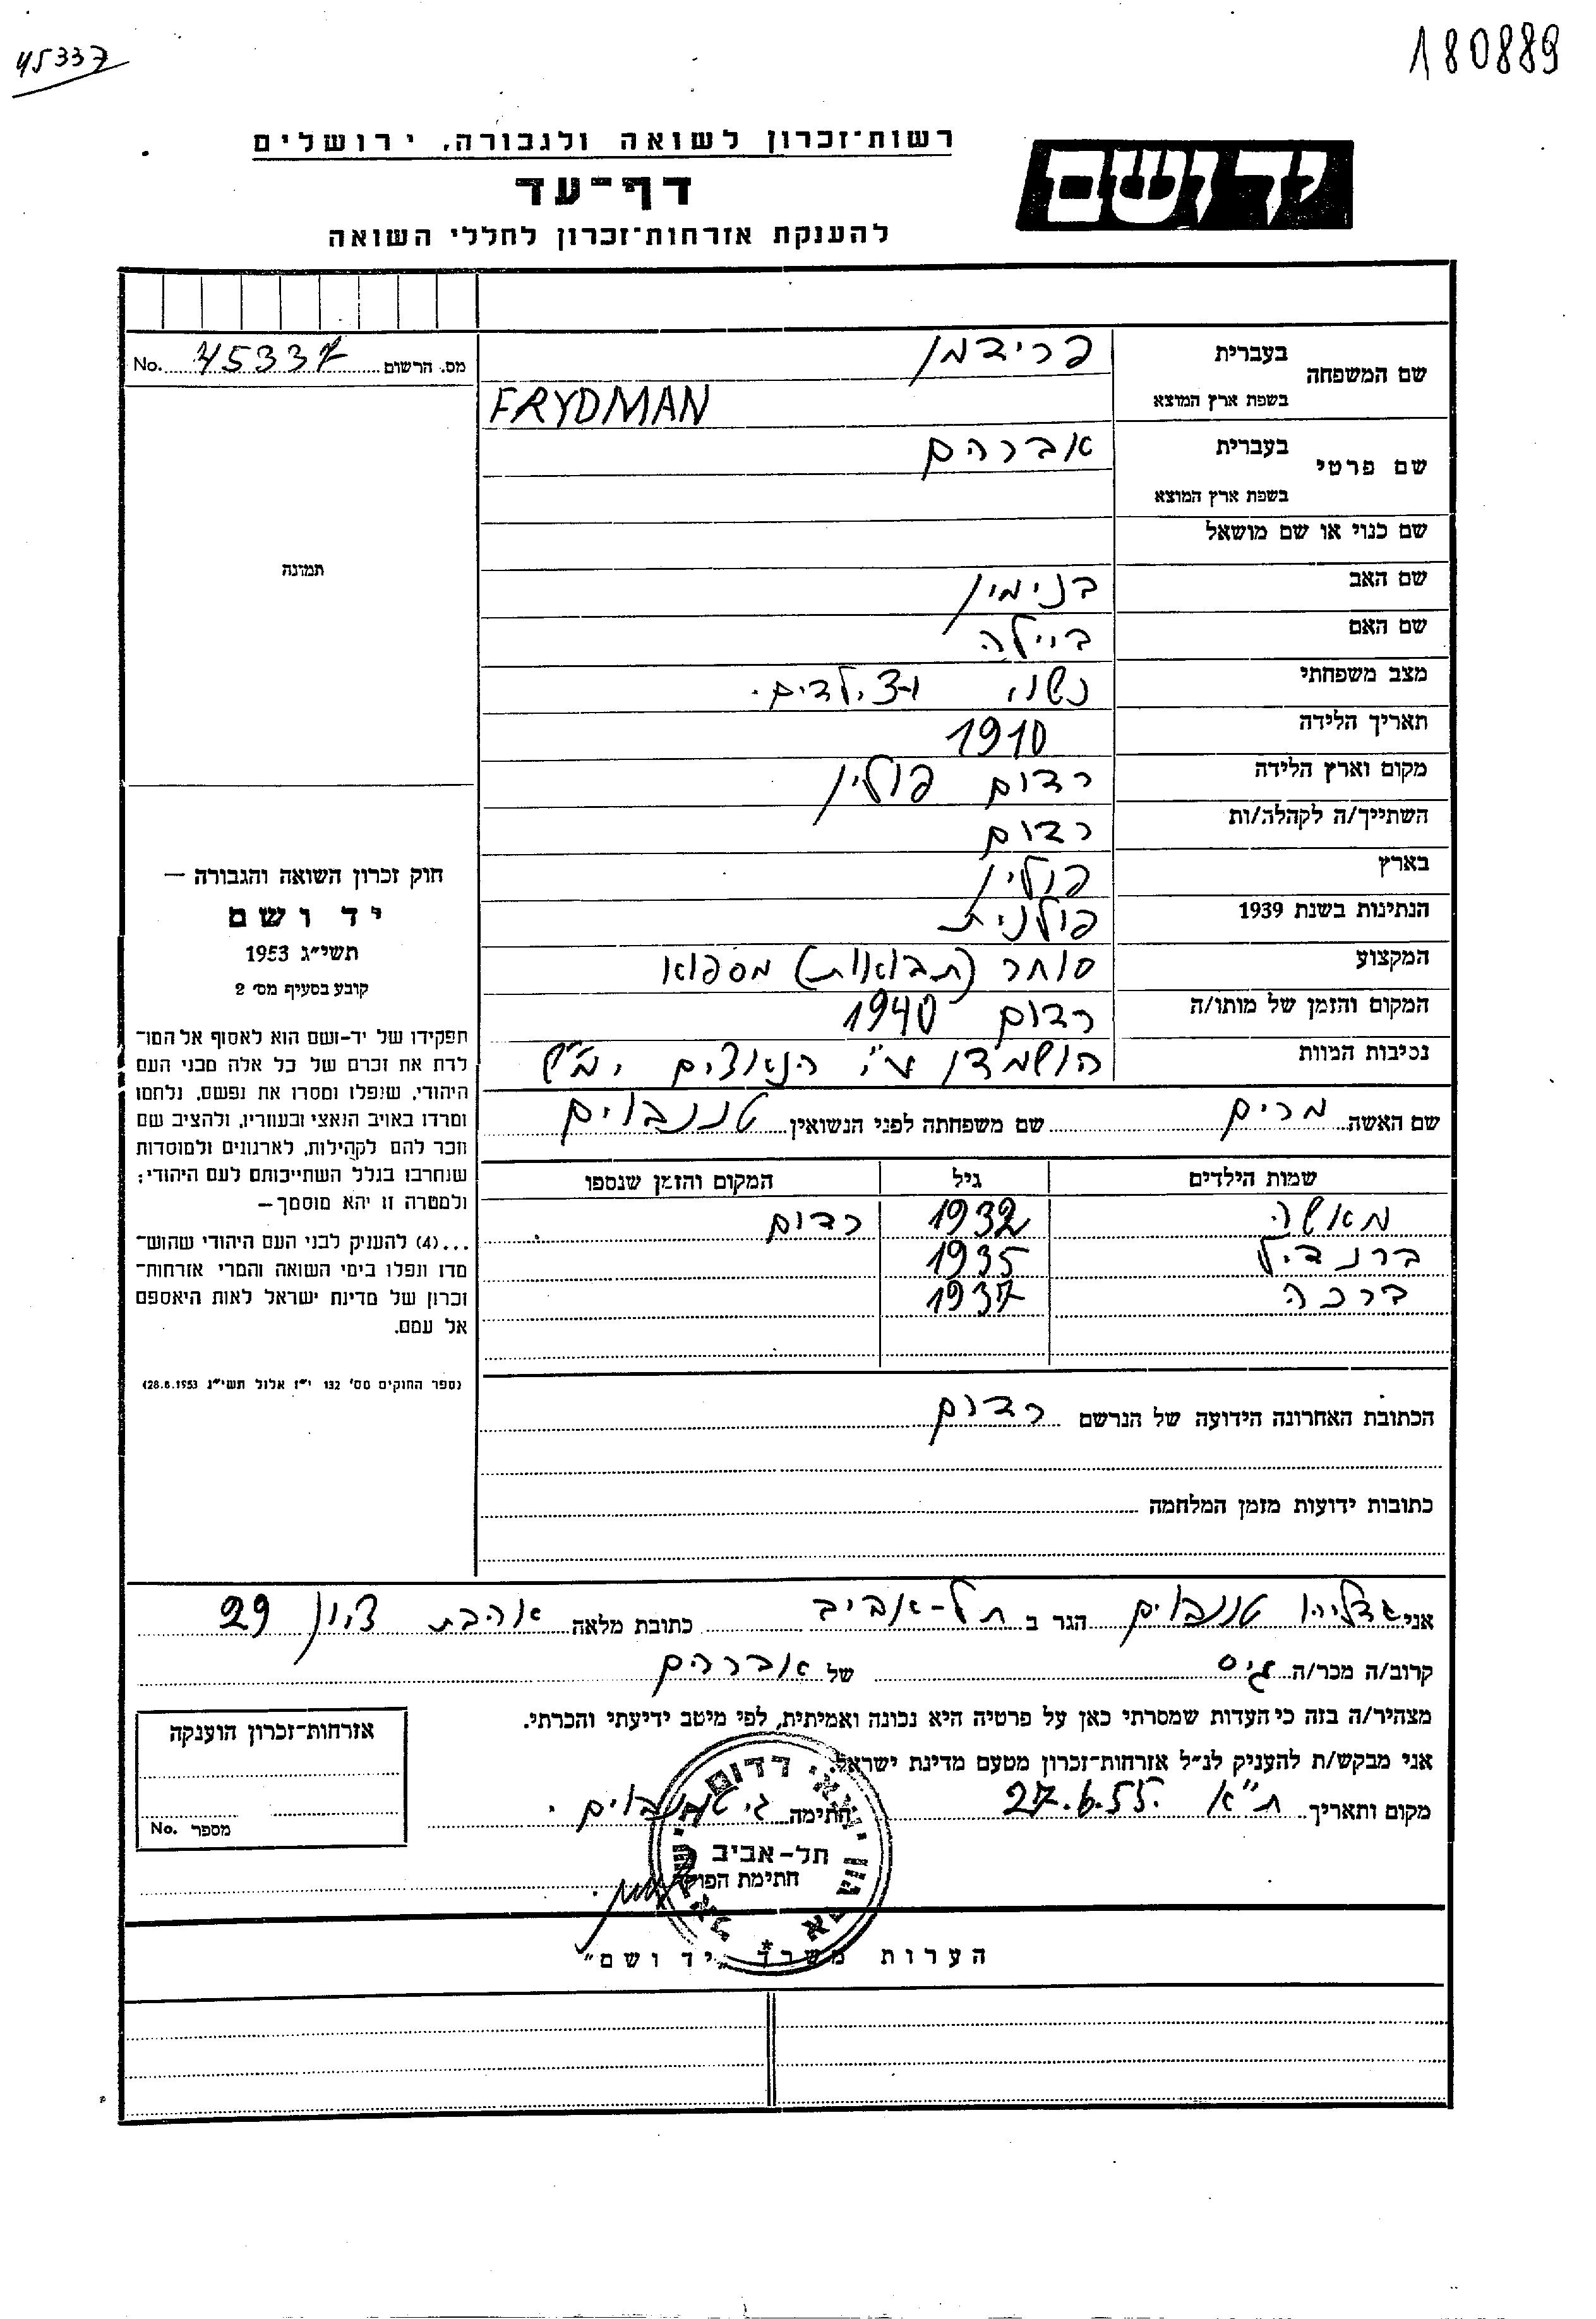 45337
180889
רשות־זכרון לשואה ולגבורה, ירושלים
יד ושם
דף־עד
להענקת אזרחות־זכרון לחללי השואה
מס. הרשום 45337 No.
שם המשפחה
בעברית פרידמן
בשפת ארץ המוצא FRYDMAN
שם פרטי
בעברית אברהם
בשפת ארץ המוצא
שם כנוי או שם מושאל
שם האב בנימין
שם האם ביילה
מצב משפחתי נשוי ו-3 ילדים.
תאריך הלידה 1910
מקום וארץ הלידה רדום פולין
השתייך/ה לקהלה/ות רדום
בארץ פולין
הנתינות בשנת 1939 פולנית
המקצוע סוחר (תבואות) מספוא
המקום והזמן של מותו/ה רדום 1940
נסיבות המוות הושמדו ע"י הנאצים ימ"ש
שם האשה מרים שם משפחתה לפני הנשואין טננבוים
שמות הילדים גיל המקום והזמן שנספו
מאשה 1932 רדום
ברנדיל 1935
ברכה 1937
הכתובת האחרונה הידועה של הנרשם רדום
כתובות ידועות מזמן המלחמה
תמונה
חוק זכרון השואה והגבורה —
יד ושם
תשי״ג 1953
קובע בסעיף מס׳ 2
תפקידו של יד-ושם הוא לאסוף אל המו־
לדת את זכרם של כל אלה מבני העם
היהודי, שנפלו ומסרו את נפשם, נלחמו
ומרדו באויב הנאצי ובעוזריו, ולהציב שם
וזכר להם לקהילות, לארגונים ולמוסדות
שנחרבו בגלל השתייכותם לעם היהודי;
ולמטרה זו יהא מוסמך—
...(4) להעניק לבני העם היהודי שהוש־
מדו ונפלו בימי השואה והמרי אזרחות־
זכרון של מדינת ישראל לאות היאספם
אל עמם.
(ספר החוקים מס׳ 132 י״ז אלול תשי״ג 28.8.1953)
אני גדליהו טננבוים הגר ב תל-אביב כתובת מלאה אהבת ציון 29
קרוב/ה מכר/ה גיס של אברהם
מצהיר/ה בזה כי העדות שמסרתי כאן על פרטיה היא נכונה ואמיתית, לפי מיטב ידיעתי והכרתי.
אני מבקש/ת להעניק לנ״ל אזרחות־זכרון מטעם מדינת ישראל.
מקום ותאריך ת"א 27.6.55 חתימה ג. טננבוים.
אזרחות־זכרון הוענקה
מספר No.
יוצאי רדום
תל-אביב
חתימת הפוקד
הערות משרד „יד ושם״